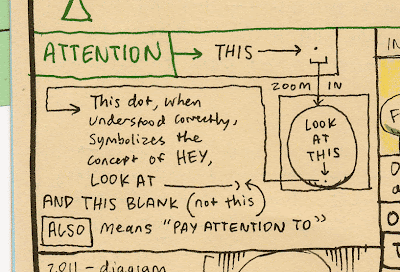 ATTENTION → THIS → .
ZOOM IN
LOOK
AT
THIS
This dot, when
understood correctly,
symbolizes the
concept of HEY,
LOOK AT ______
AND THIS BLANK (not this)
ALSO means "PAY ATTENTION TO"
2011 - diagram